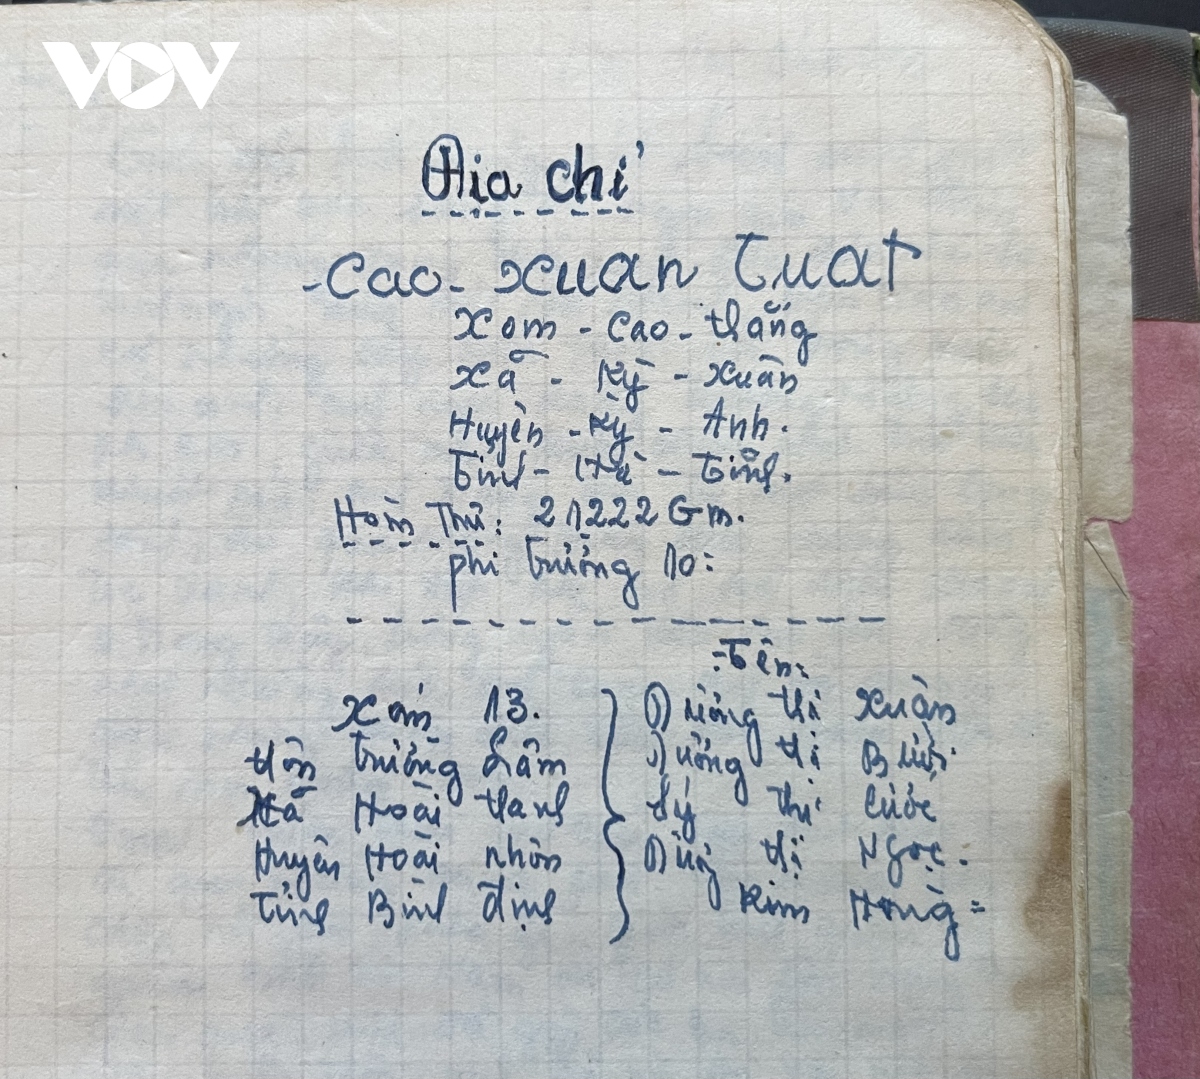 VOV
Địa chỉ
- Cao - Xuan Tuat
Xom - Cao - thắng
Xã - Kỳ - Xuân
Huyện - Kỳ - Anh.
Tỉnh - Hà - Tĩnh.
Hòm Thư: 21222 Gm.
phi trường 10:
Tên:
Xóm 13. Dương thị Xuân
thôn trường Lâm Dương thị Bười
Xã Hoài thanh Lý thị Cước
Huyện Hoài nhơn thị Ngọc.
Tỉnh Bình định Kim Hoàng =